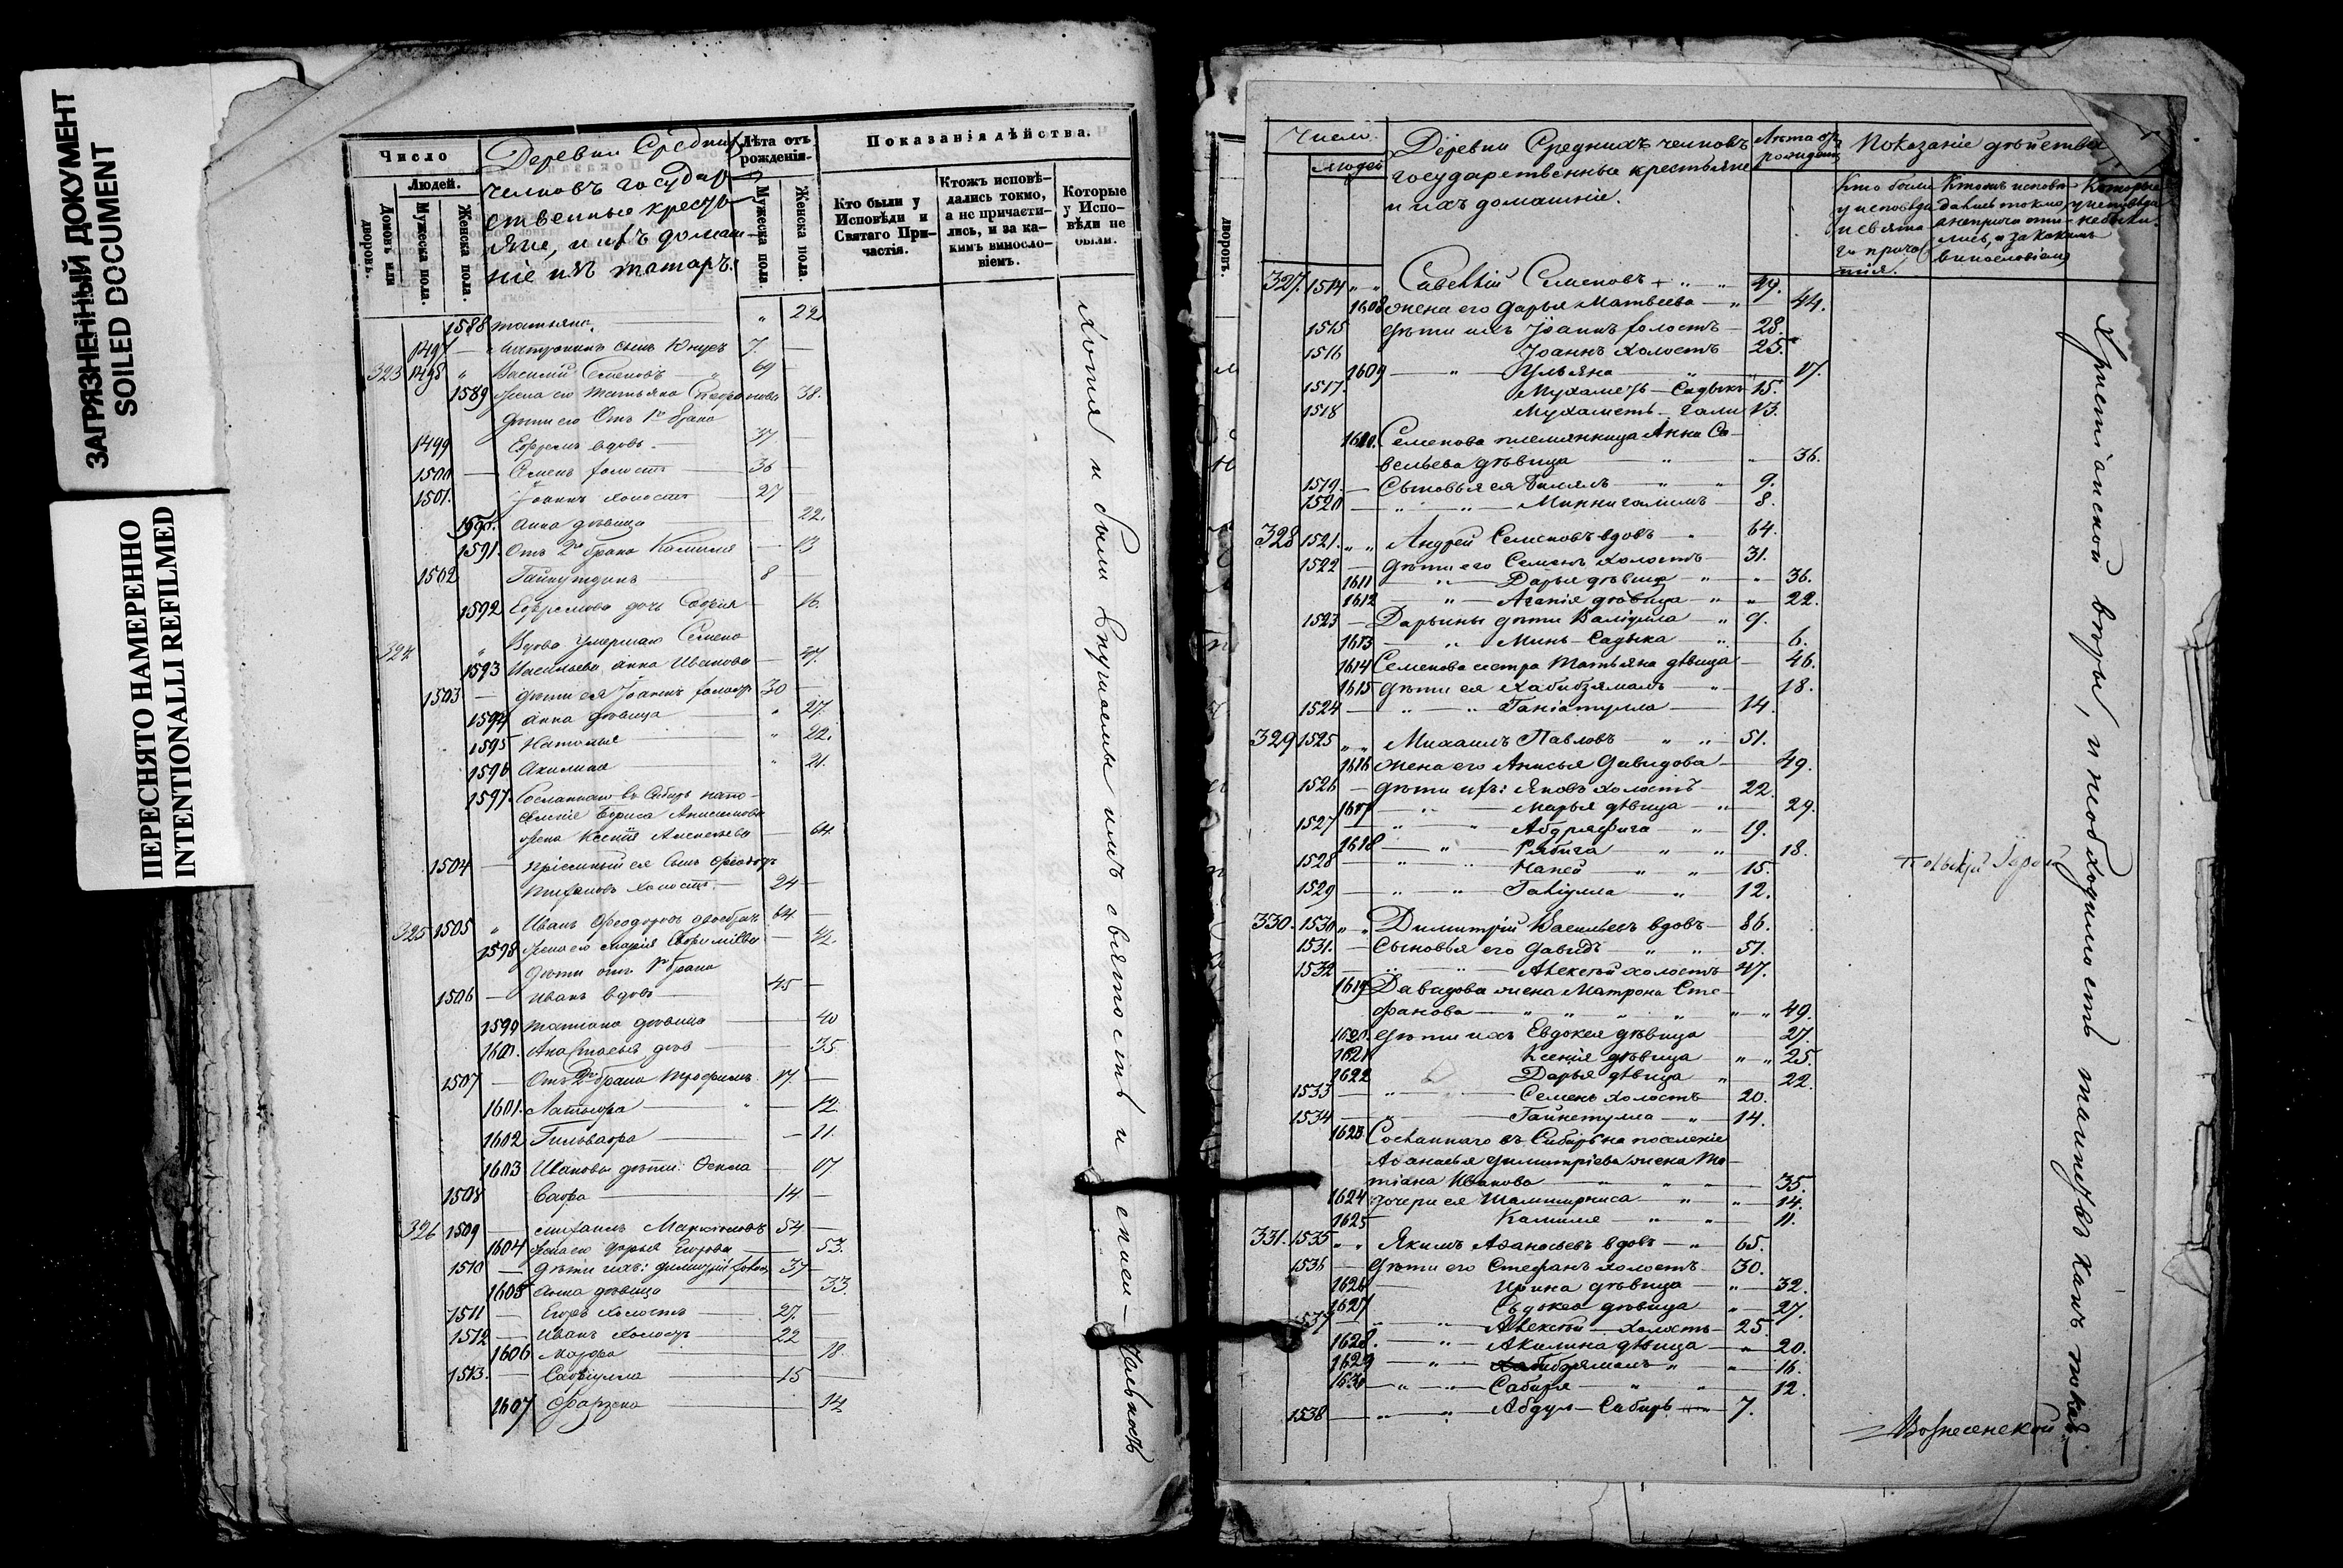 ЗАГРЯЗНЕННЫЙ ДОКУМЕНТ
SOILED DOCUMENT
ПЕРЕСНЯТО НАМЕРЕННО
INTENTIONALLI REFILMED
Число
Людей.
Домовъ или дворовъ.
Мужеска пола.
Женска пола.
Деревни Среднихъ
Челновъ государ-
ственные кресть-
яне, и ихъ домаш-
ніе изъ татаръ.
Лѣта отъ рожденія.
Мужеска пола.
Женска пола.
Показанія дѣйства.
Кто были у Исповѣди и Святаго При-частія.
Ктожъ исповѣ-дались токмо, а не причасти-лись, и за ка-кимъ винослов-віемъ.
Которые у Испо-вѣди не были.
1588 Татьяна 22
1497 сынъ Юнусъ 7.
323 1498 Василій Семеновъ 69
1589 Жена его Татьяна Стефанова 38.
Дѣти его Отъ 1го брака
1499 Ефремъ вдовъ 37
1500 Семенъ холостъ 36
1501. Іоаннъ холостъ 27
1590. Анна дѣвица 22.
1591. Отъ 2го брака Камиля 13
1502 Гайнутдинъ 8
1592 Ефремова дочь Софія 16.
324 Вдова умершаго Семена
1593 Васильева Анна Иванова 47.
1503 дѣти ея Іоаннъ холостъ 30
1594 Анна дѣвица 27.
1595 Наталья 22.
1596 Акилина 21.
1597. Сосланнаго въ Сибирь на по-
селеніе Бориса Анисимова
жена Ксенія Алексѣева 64
1504 пріемный ея сынъ Феодоръ
холостъ 24
325 1505 Иванъ Феодоровъ двоебрач. 64
1598 Жена его Марія 42.
Дѣти отъ 1го брака
1506 Иванъ вдовъ 45
1599 Татіана дѣвица 40
1600. Анастасья дѣв 35
1507 Отъ 2го брака Трофимъ 17.
1601. 12.
1602 11.
1603 Ивановы дѣти: 17
1508 14
326 1509 Михаилъ 54
1604 Жена его Дарья Егорова 53.
1510 Дѣти ихъ: Димитрій холост 37
1605 Анна дѣвица 33.
1511 Егоръ холостъ 27.
1512 Иванъ холостъ 22
1606 Марфа 18.
1513. 15
1607 14
хотя и были внушаемы имъ святость и спаси-тельность
Число.
Людей
дворовъ.
Деревни Среднихъ челновъ
государственные крестьяне
и ихъ домашніе.
Лѣта отъ рожденія
Показаніе дѣйства
Кто были у исповѣди и свята го прича стія.
Ктожъ исповѣ дались токмо, а непричасти лись, и за какимъ винословіемъ
Которые у исповѣди небыли.
327. 1514 Савелій Семеновъ 49.
1608 жена его Дарья Матвѣева 44.
1515 дѣти ихъ Іоаннъ холостъ 28.
1516 Іоаннъ холостъ 25.
1609 Ульяна 17.
1517. Мухаметъ-Садыкъ 15.
1518 Мухаметъ-Гали 13.
1610. Семенова племянница Анна Са-
вельева дѣвица 36.
1519. Сыновья ея 9.
1520 Миннигалимъ 8.
328 1521. Андрей Семеновъ вдовъ 64.
1522 дѣти его Семенъ холостъ 31.
1611 Дарья дѣвица 36.
1612 Агапія дѣвица 22.
1523 Дарьины дѣти Валіулла 9.
1613 Минь-Садыка 6.
1614 Семенова сестра Татьяна дѣвица 46.
1615 дѣти ея Хабибзямалъ 18.
1524 Ганіатулла 14.
329 1525 Михаилъ Павловъ 51.
1616 жена его Анисья Давидова 49.
1526 дѣти ихъ: Яковъ холостъ 22.
1617 Марья дѣвица 29.
1527 Абдряфига 19.
1618 Рябига 18.
1528 Напей 15.
1529 Гавіулла 12.
330. 1530 Димитрій Васильевъ вдовъ 86.
1531. Сыновья его Давидъ 51.
1532 Алексѣй холостъ 47.
1619 Давидова жена Матрона Сте-
фанова 49.
1620. дѣти ихъ Евдокея дѣвица 27.
1621 Ксенія дѣвица 25.
1622 Дарья дѣвица 22.
1533 Семенъ холостъ 20.
1534 Гайнетулла 14.
1623 Сосланнаго въ Сибирь на поселеніе
Афанасья Димитріева жена Та-
тіана Иванова 35.
1624 дочери ея 14.
1625 Камиля 11.
331. 1535 Якимъ Афанасьевъ вдовъ 65.
1536 дѣти его Стефанъ холостъ 30.
1626 Ирина дѣвица 32.
1627 Евдокея дѣвица 27.
1537 Алексѣй холостъ 25.
1628. Акилина дѣвица 20.
1629 Хабибзямалъ 16.
1630 Сабиря 12.
1538 Абдул-Сабиръ 7.
Христіанской вѣры, и необходимость таинствъ
Вознесенской